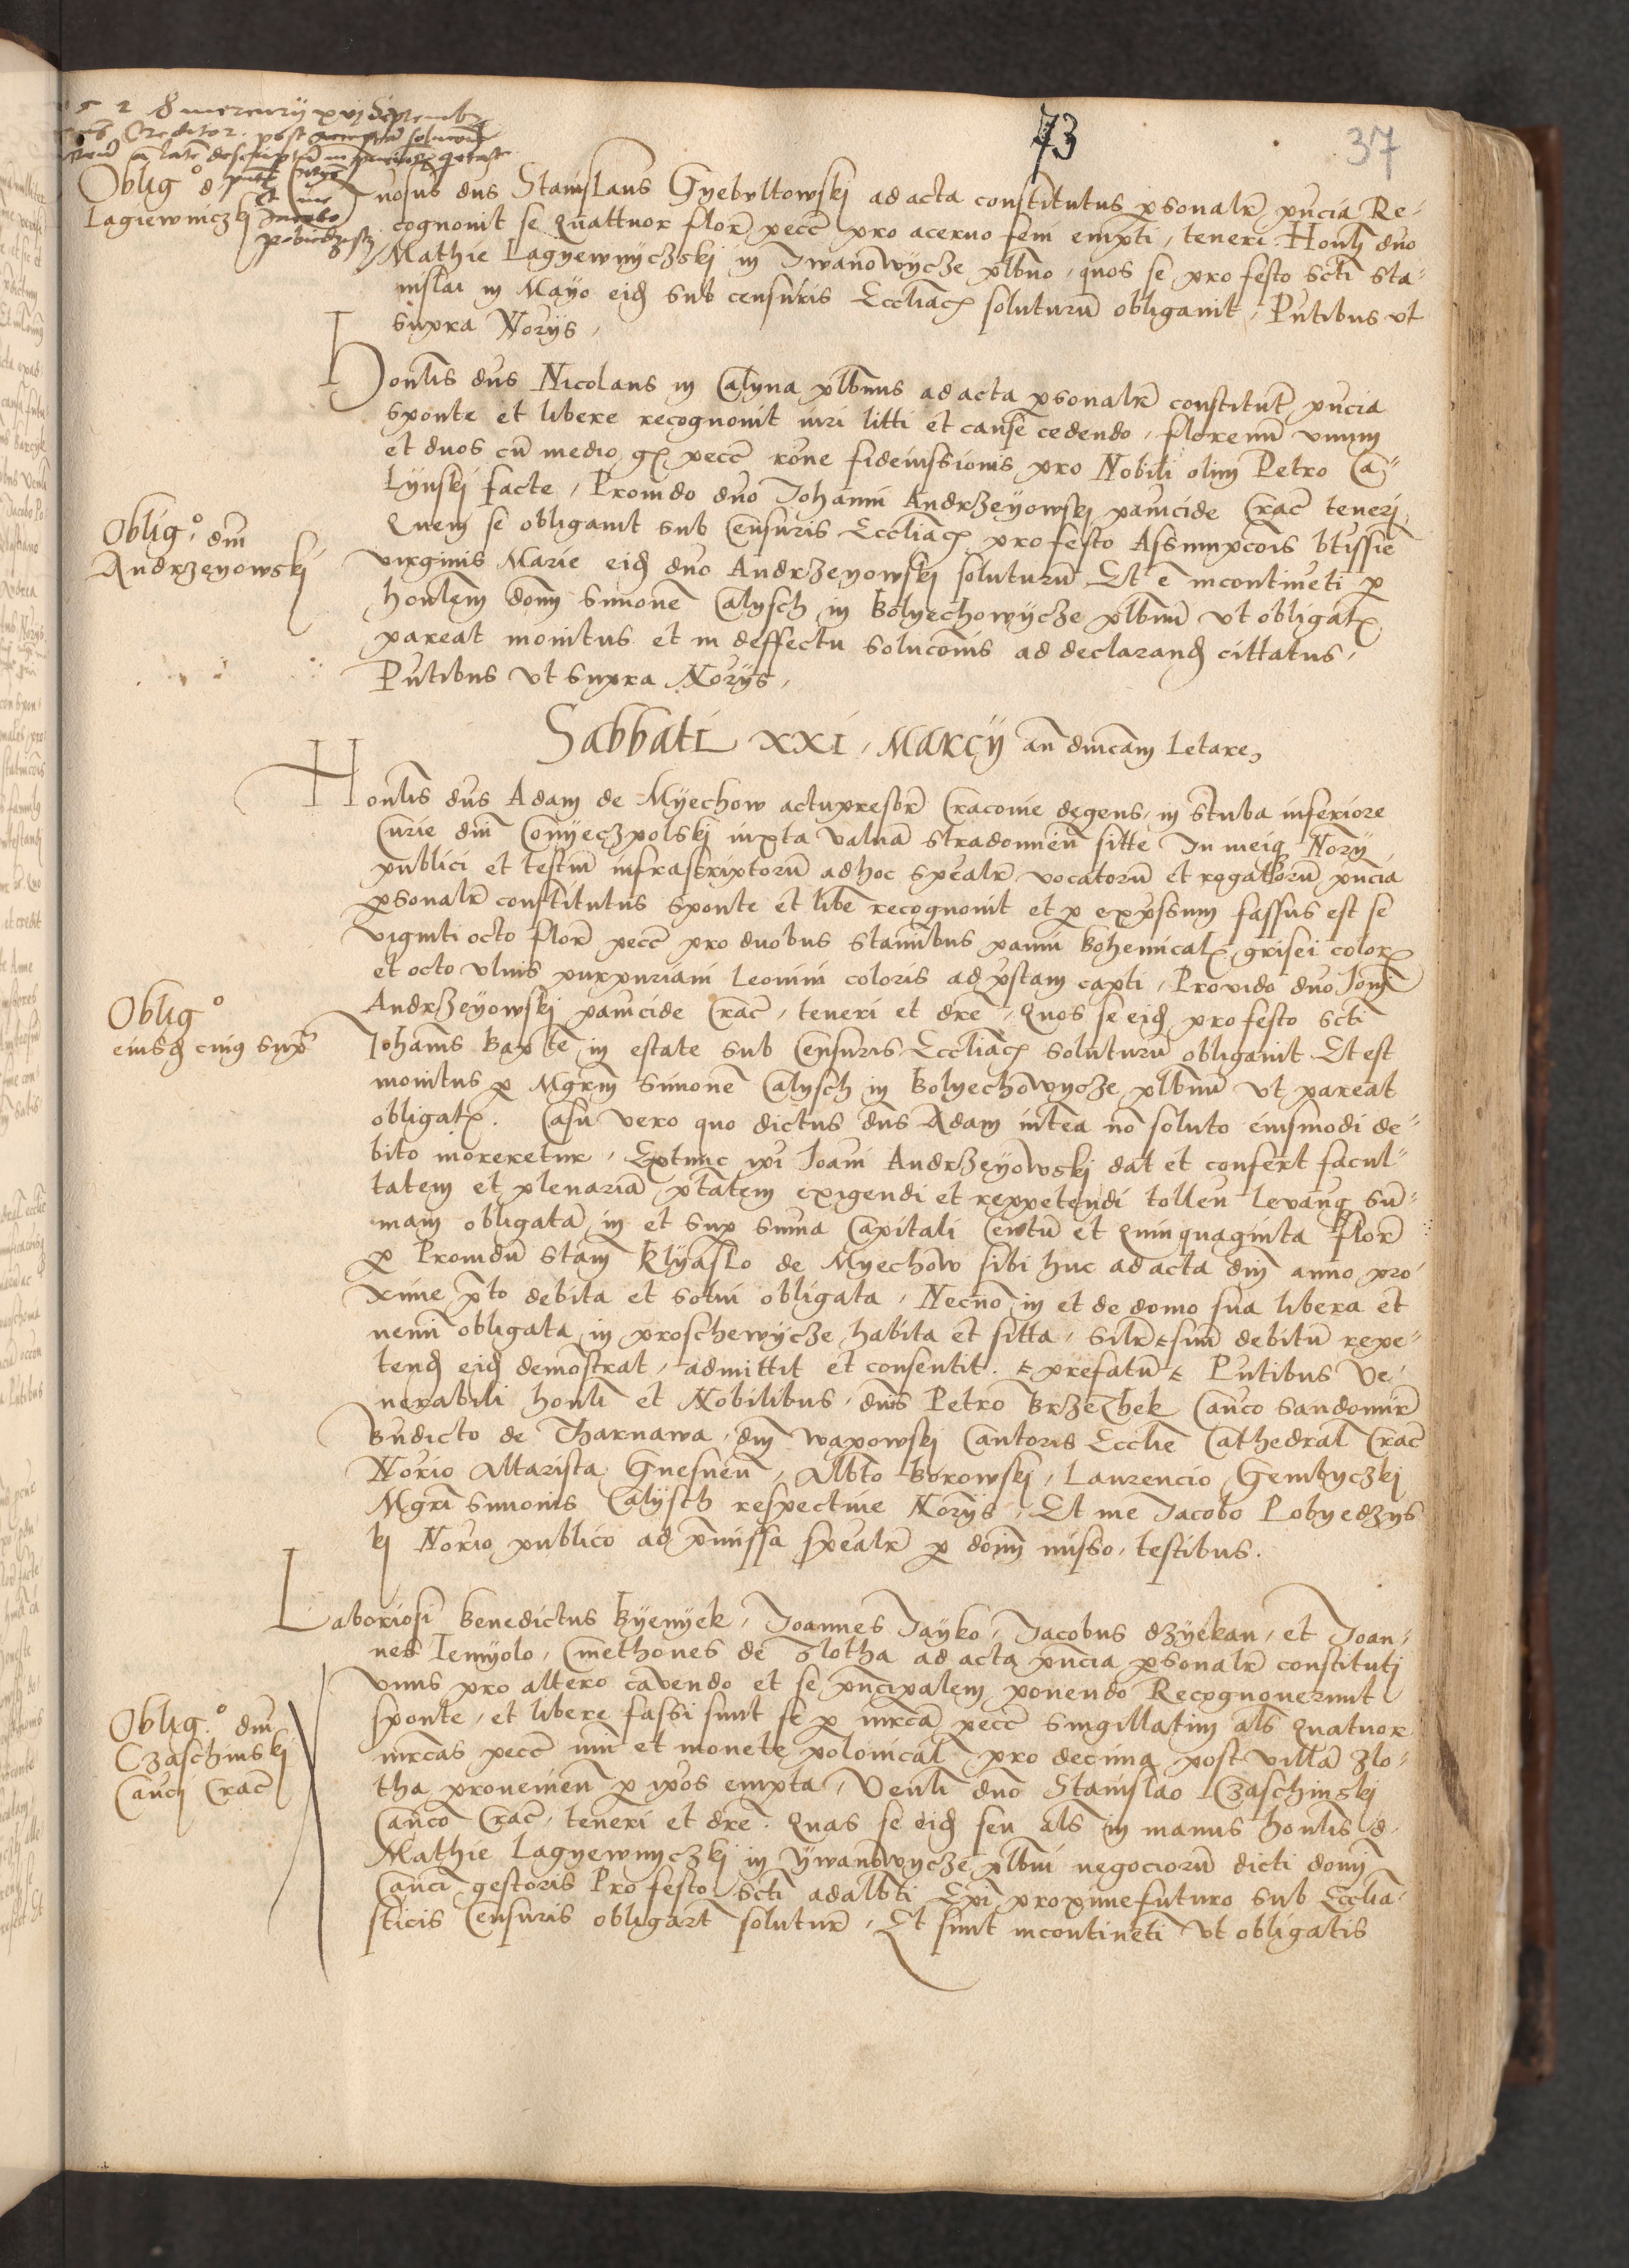 73
37
5 2 8 mercurij xvj Septemb
Creditor post
Oblig° d
Lagiewniczki
Jacobo
pobiedzisky
nosus dns Stanislaus Gyebultowskj ad acta constitutus psonalr pncia Re-
cognovit se Quattuor flor pecc pro acervo feni empti, teneri Honli dno
Mathie Lagyewnyczskj in Iwanowycze plbno, quos se pro festo scti Sta-
nislai in Mayo eid sub censuris Eccliac soluturu obligavit, Pntibus vt
supra Norijs,
Honlis dns Nicolaus in Calyna plbnus ad acta psonalr constitut pncia
sponte et libere recognovit iuri litti et cause cedendo, florenum vnum
et duos cu medio gr pecc rone fideiussionis pro Nobili olim Petro Ca-
lynskj facte, Provido dno Johanni Andrzeyowskj pannicide Crac tenerj,
Quem se obligavit sub Censuris Eccliac pro festo Assumpcois btissie
virginis Marie eid dno Andrzeyowskj soluturu Et e incontineti p
honlem dom Simone Calysch in Bolyechowycze plbnu vt obligat
pareat monitus et in deffectu solucois ad declarand cittatus,
Pntibus vt supra Norijs,
Oblig° dni
Andrzeyowskj
Sabbati XXI, Marcij an dnicam Letare,
Honlis dns Adam de Myechow actu presbr Cracovie degens, in stuba inferiore
Curie dni Conyeczpolskj iuxta valva stradomien sitte In meiq Norij
publici et testiu infrascriptoru ad hoc spealr vocatoru et rogatoru pncia
psonalr constitutus sponte et libe recognovit et p expssum fassus est se
viginti octo flor pecc pro duobus staminibus panni bohemical grisei color
et octo vlnis purpuriani leonini coloris ad pstam capti, Provido dno Joni
Andrzeyowskj pannicide Crac, teneri et dre, Quos se eid pro festo scti
Johanis Bapte in estate sub Censuris Eccliac soluturu obligavit Et est
monitus p Mgrm Simone Calysch in Bolyechowycze plbnu vt pareat
obligat. Casu vero quo dictus dns Adam intea no soluto eiusmodi de-
bito moreretur, Extunc ipi Joani Andrzeyowskj dat et confert facul-
tatem et plenaria ptatem exigendi et reppetendi tollen levanq sum-
mam obligata in et sup suma Capitali Centu et Quinquaginta flor
p Providu Stam Klyaslo de Myechow sibi huc ad acta dni anno pro-
xime pto debita et solui obligata, Necno in et de domo sua libera et
nemi obligata in proschewycze habita et sitta, silr suu debitu repe-
tend eid demostrat, admittit et consentit. prefatu Pntibus Ve-
nerabili honli et Nobilibus, dnis Petro Brzechek Canco Sandomir
Bndicto de Tharnawa, dni wapowskj Cantoris Ecclie Cathedral Crac
Norio Altarista Gnesnen, Albto Borowskj, Laurencio Gembyczkj
Mgri Simonis Calysch respective Norijs, Et me Jacobo Pobyedzys
kj Norio publico ad pmissa spealr p dom misso, testibus.
Oblig°
eiusd cuiq sup
Laboriosi Benedictus Byenyek, Joannes Jayko, Jacobus dzyekan, et Joan-
nes Iemyolo, Cmethones de Zlotha ad acta pncia psonalr constitutj
vnus pro altero cavendo et se pncipalem ponendo Recognoverunt
sponte, et libere fassi sunt se p mrca pecc singillatim als Quatuor
mrcas pecc nui et monete polonical pro decima post villa Zlo-
tha provenien p ipos empta, Venli dno Stanislao Czaschinskj
Canco Crac, teneri et dre. Quas se eid seu als in manus honlis d.
Mathie Lagyewnyczkj in ywanowycze plbni negocioru dicti domj
Canci gestoris Pro festo scti adalbti Epi proxime futuro sub Ecclia-
sticis Censuris obligart solutur, Et sunt incontineti vt obligatis
Oblig.° dni
Czaschinskj
Canci Crac